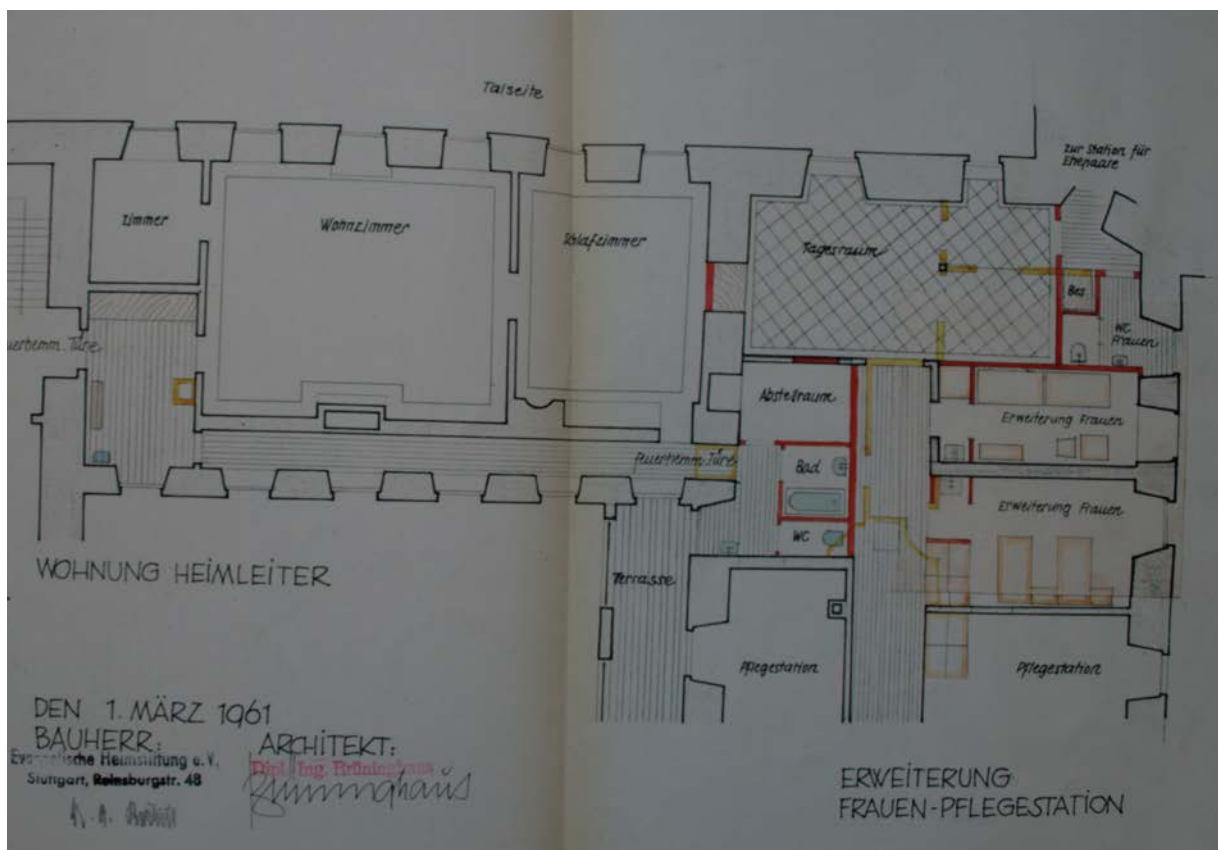 Talseite
zur Station für
Ehepaare
Zimmer
Wohnzimmer
Schlafzimmer
Tagesraum
Bes.
WC
Frauen
Türe
Abstellraum
Erweiterung Frauen
Feuerhemm. Türe
Bad
Erweiterung Frauen
WC
WOHNUNG HEIMLEITER
Terrasse
Pflegestation
Pflegestation
DEN 1. MÄRZ 1961
BAUHERR:
ARCHITEKT:
Evangelische Heimstiftung e.V.
Stuttgart, Reinsburgstr. 48
Dipl. Ing. Brüninghaus
Brüninghaus
ERWEITERUNG
FRAUEN-PFLEGESTATION